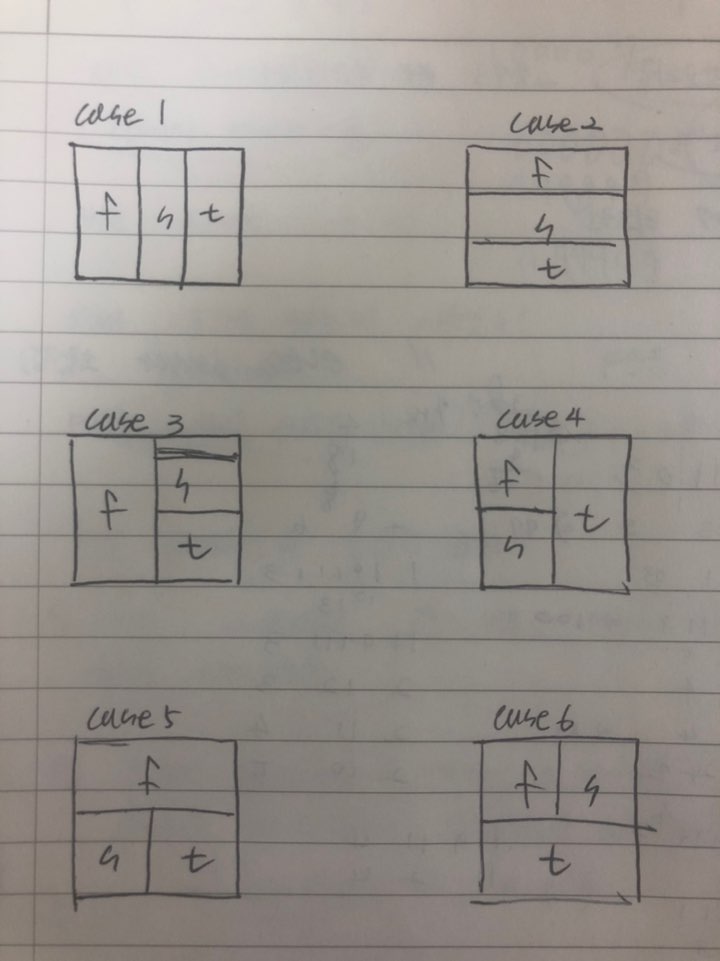 case 1
case 2
f s t
f
s
t
case 3
case 4
f
s
t
f
s
t
case 5
case 6
f
s t
f s
t